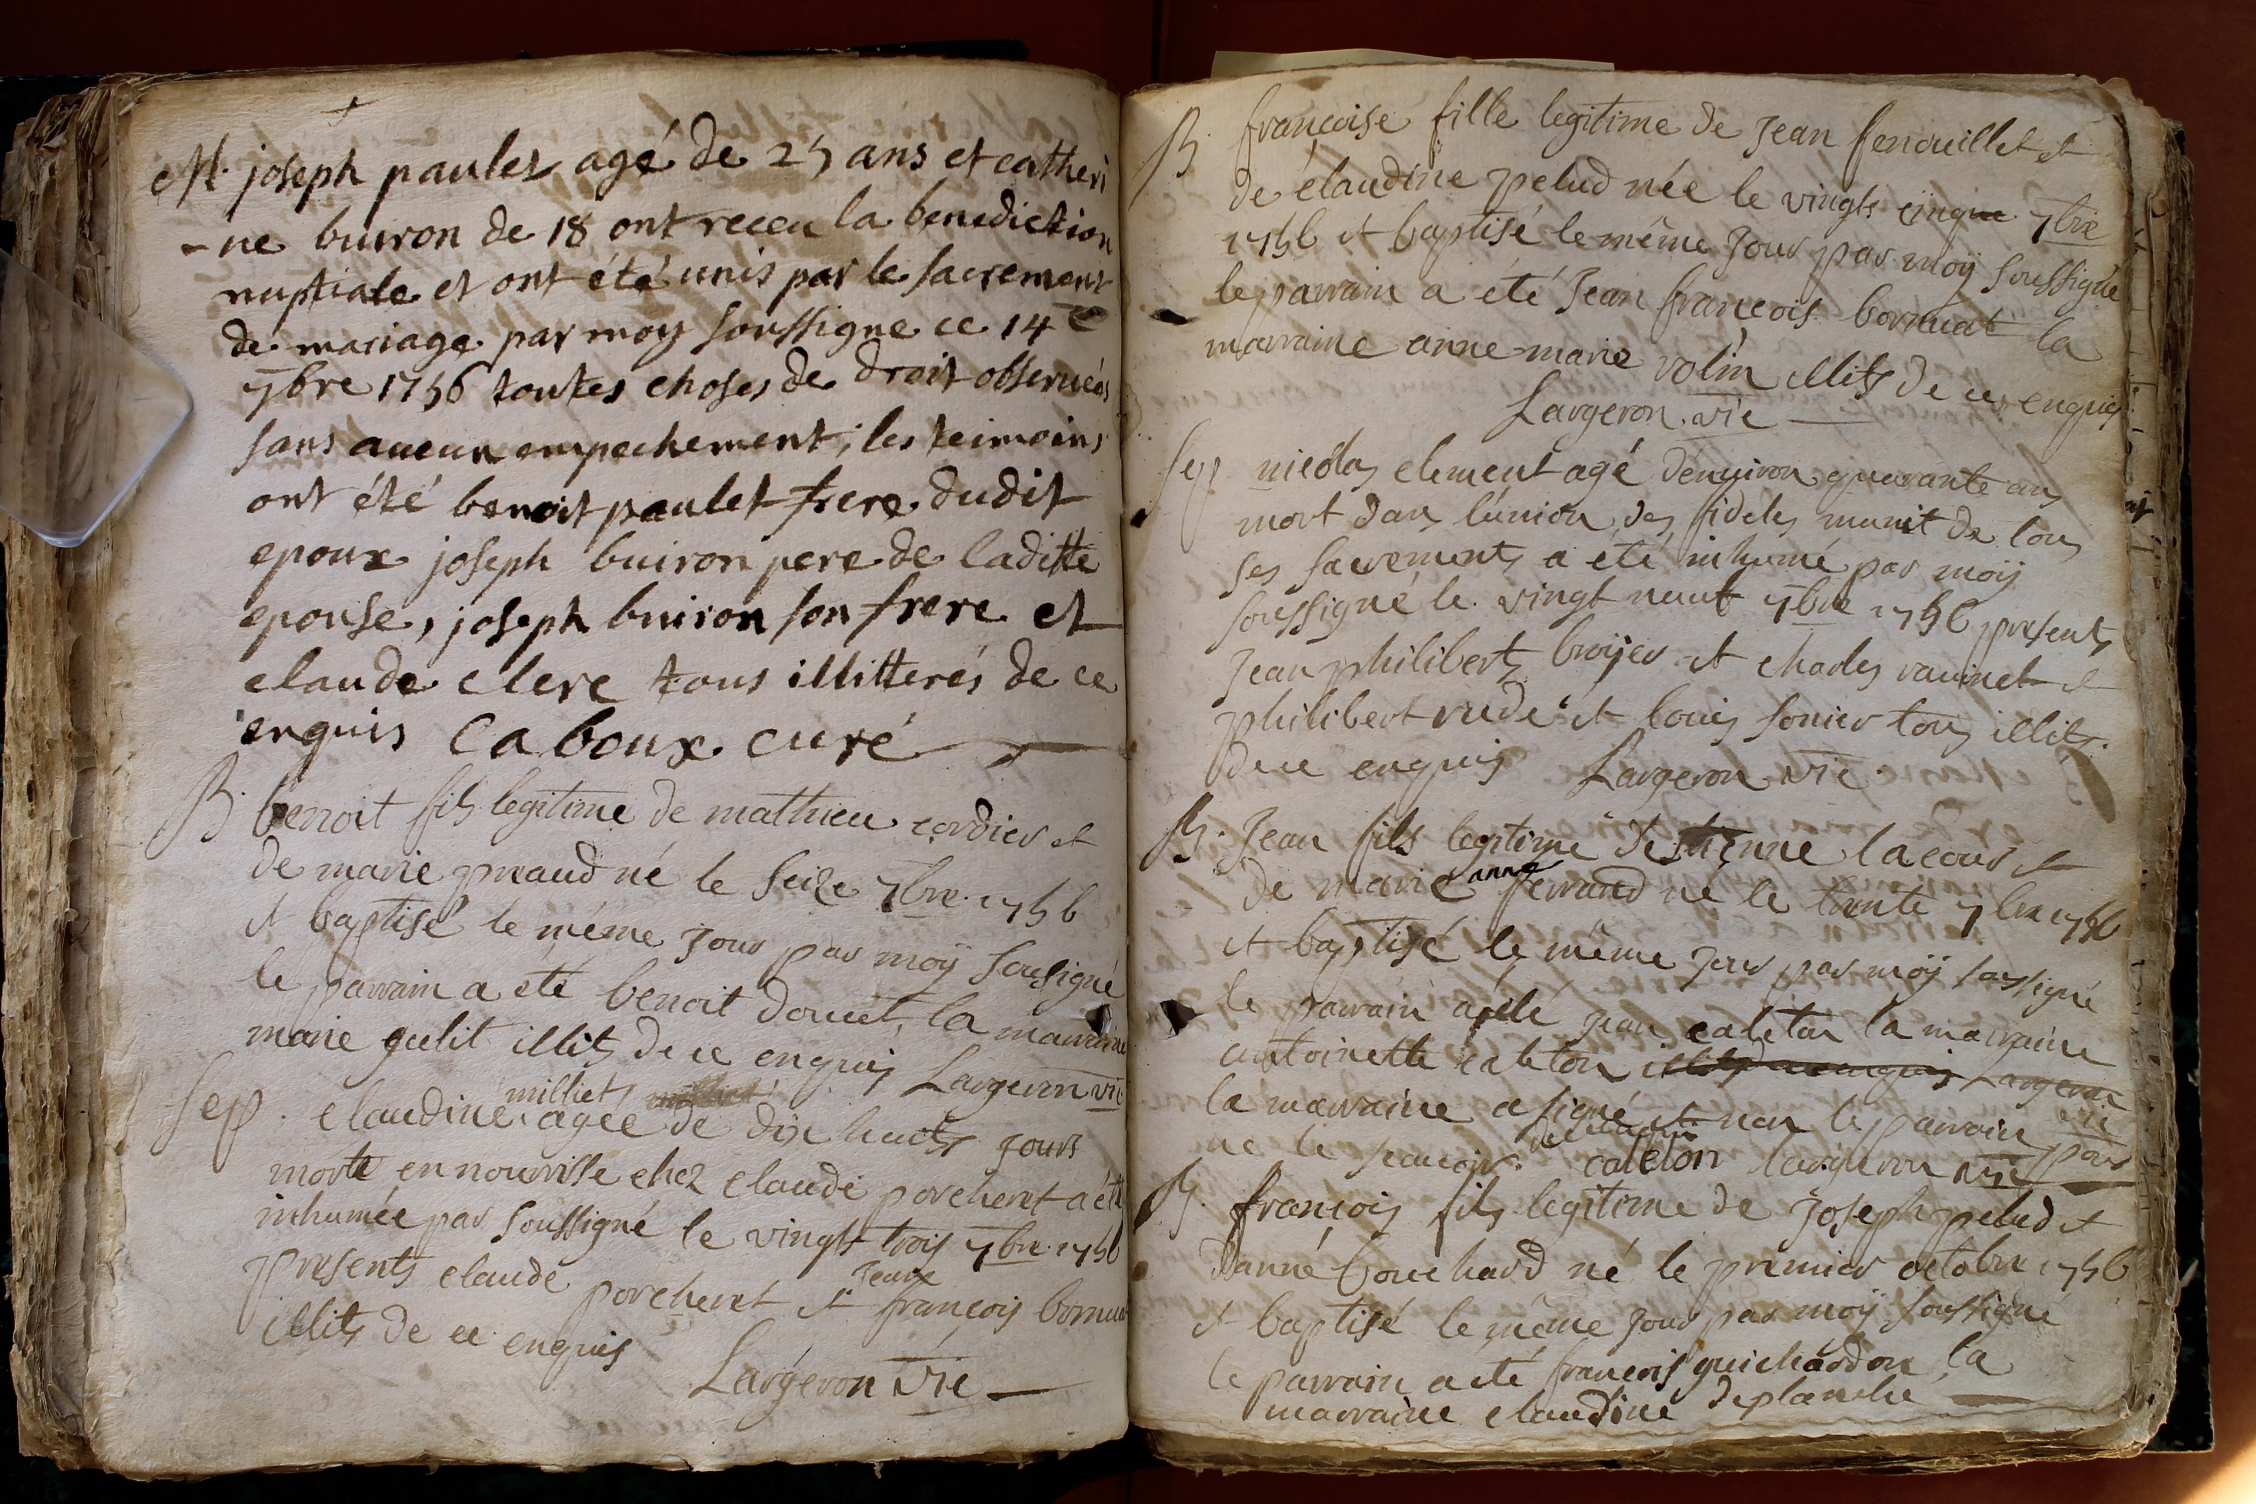 M. joseph paulet agé de 25 ans et catheri
-ne buiron de 18 ont receu la benediction
nuptiale et ont été unis par le sacrement
de mariage par moy soussigne ce 14e
7bre 1756 toutes choses de droit observées
sans aucun empechement; les teimoins
ont été benoit paulet frere dudit
epoux joseph buiron pere de laditte
epouse, joseph buiron son frere et
claude clere tous illitterés de ce
enquis Caboux curé
B. benoit fils legitime de mathieu cordier et
de marie preaud né le seize 7bre 1756
et baptisé le même jour par moÿ sousigné
le parrain a été benoit doucet, la marraine
marie guelit illits de ce enquis Largeron vic
Sep. claudine milliet agée de dix huits jours
morte en nourrisse chez claude porcheret a été
inhumée par soussigné le vingt trois 7bre 1756
presents claude porcheret et jean françois bornuat
illits de ce enquis
Largeron vic
B. françoise fille legitime de Jean fenouillet et
de claudine pelud née le vingts cinque 7bre
1756 et baptisé le même jour par moÿ soussigné
le parrain a été Jean françois bornuat la
marraine anne marie volin illits de ce enquis
Largeron vic
Sep nicolas clement agé d'environ quarante ans
mort dans l'union des fideles munit de tous
ses sacrements a été inhumé par moÿ
soussigné le vingt neuf 7bre 1756 presents
Jean philibert broÿer et charles ravinet et
philibert rude et louis sonier tous illits.
de ce enquis Largeron vic.
B. Jean fils legitime detienne lacour et
de marie anne ferrand né le trente 7bre 1756
et baptisé le même jour par moÿ soussigné
le parrain a été jean caleton la marraine
antoinette caleton illits de ce enquis Largeron vic
la marraine a signé et non le parrain pour
ne le scavoir. caleton largeron vic
B. françois fils legitime de joseph pelud et
danne bouchard né le premier octobre 1756
et baptisé le même jour par moÿ soussigné
le parrain a été françois guichardon la
marraine claudine deplanche